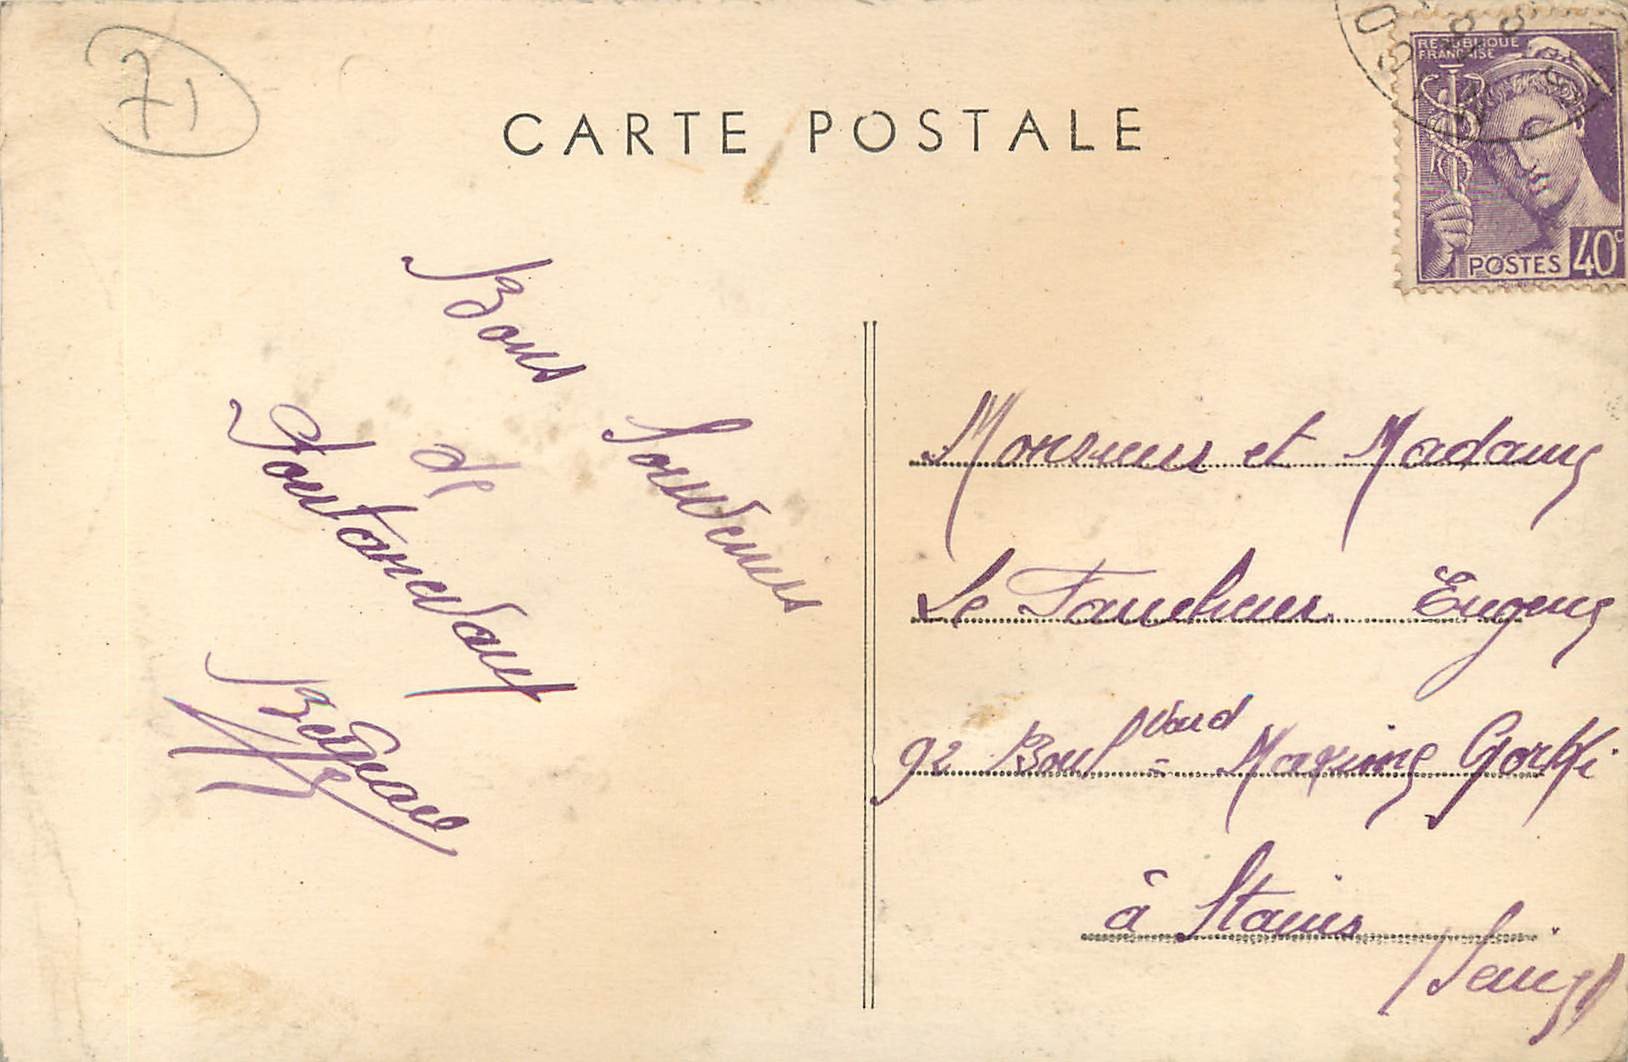 71
CARTE POSTALE
REPUBLIQUE
FRANÇAISE
POSTES 40c
Bons
Souvenirs
de
Monsieur et Madame
Le Faucheur Eugene
92 Boulvard Maxime Gorki
à Stains
(Seine)